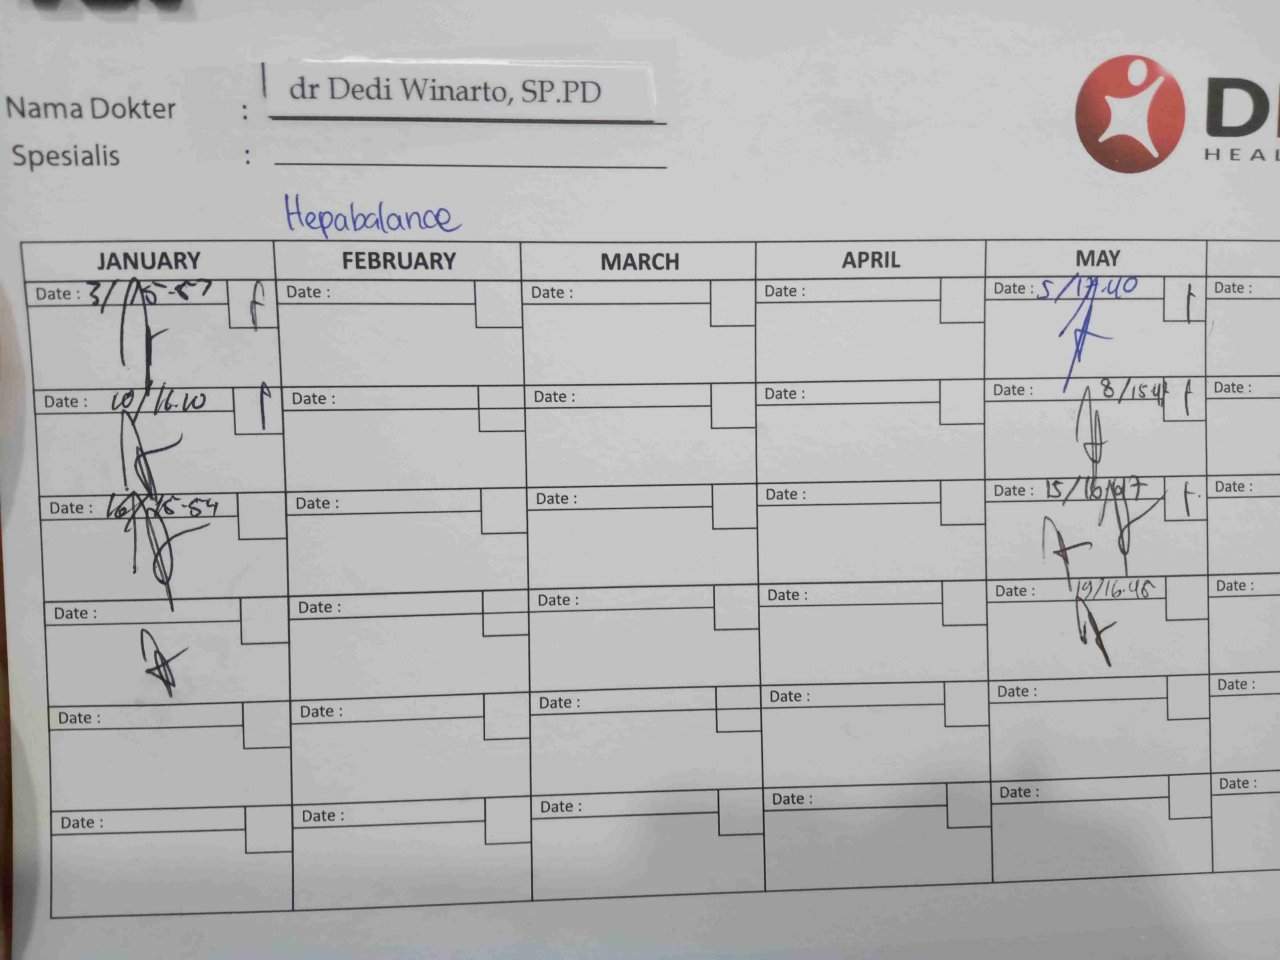 Nama Dokter : dr Dedi Winarto, SP.PD
Spesialis :
HEAL
Hepabalance
JANUARY FEBRUARY MARCH APRIL MAY
Date : 3/ 15-57 Date : Date : Date : Date : 5/17.40 Date :
Date : 10/16.10 Date : Date : Date : Date : 8/15 Date :
Date : 16/15-54 Date : Date : Date : Date : 15/16 Date :
Date : Date : Date : Date : Date : 19/16.45 Date :
Date : Date : Date : Date : Date : Date :
Date : Date : Date : Date : Date : Date :